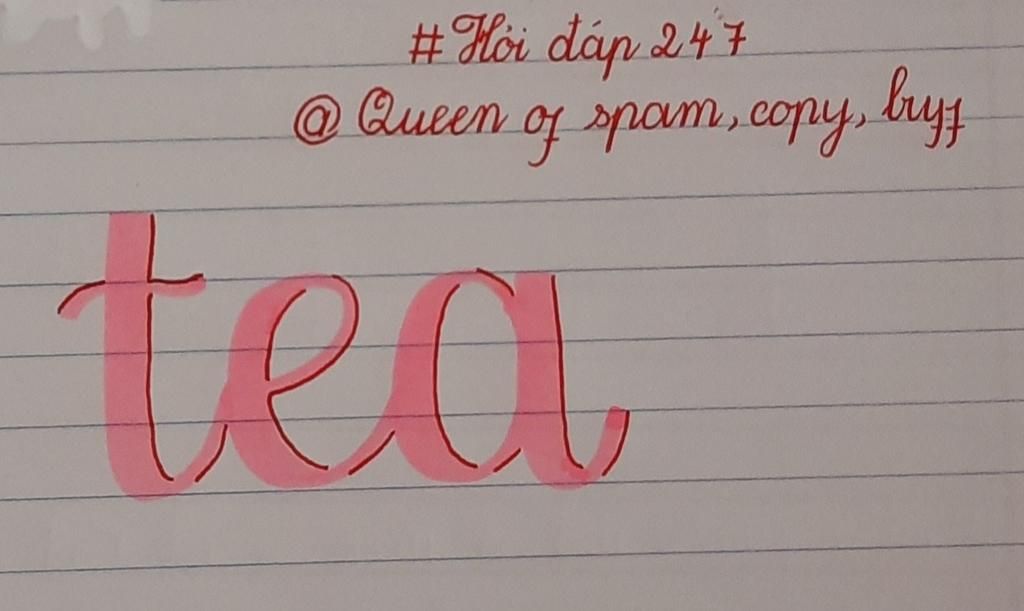 # Hỏi đáp 247
@ Queen of spam, copy, bryf
tea